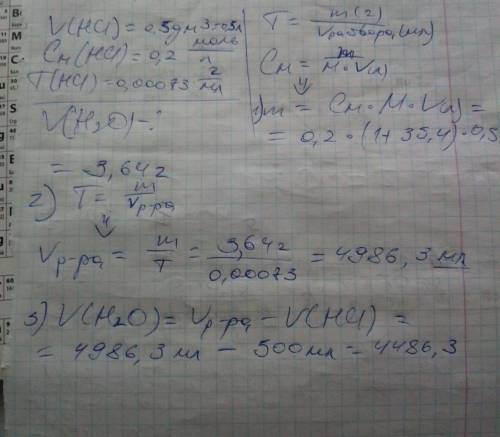 V(HCl) = 0,5дм3=0,5л
Cм(HCl)=0,2 моль/л
T(HCl)=0,00073 г/мл
V(H2O)-?
T = m(г)/Vраствора(мл)
Cм = m/M·V(л)
1) m = Cм·M·V(л) =
= 0,2·(1+35,4)·0,5
= 3,64г
2) T = m/Vр-ра
Vр-ра = m/T = 3,64г/0,00073 = 4986,3 мл
3) V(H2O) = Vр-ра - V(HCl) =
= 4986,3 мл - 500мл = 4486,3